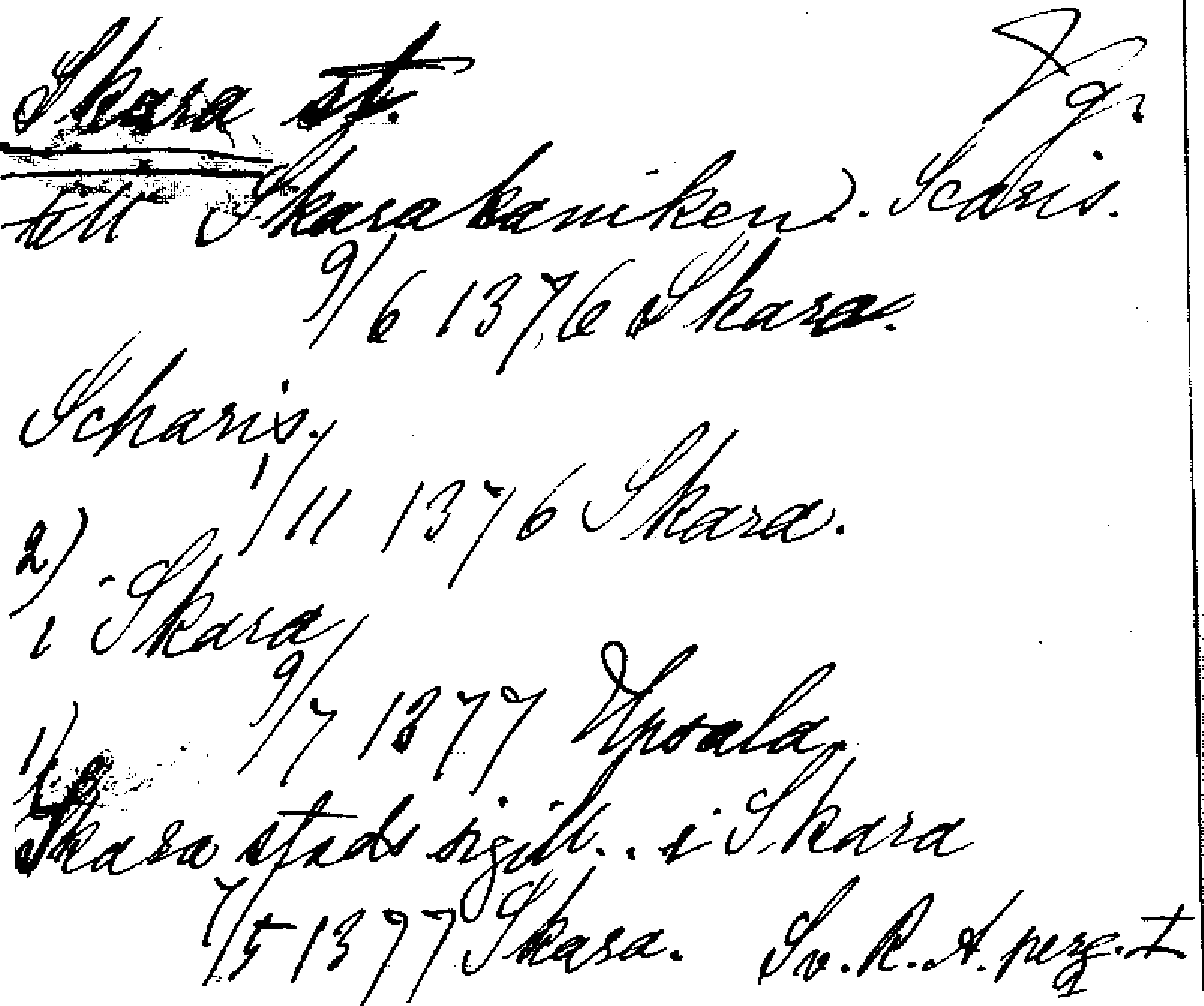 Skara st. Vg.
till Skarakaniken). Scaris.
9/6 1376 Skara.
Scharis.
1/11 1376 Skara.
2)
i Skara
9/7 1377 Upsala.
1)
Skara stads sigill.. i Skara
7/5 1377 Skara. Sv. R. A. perg. I